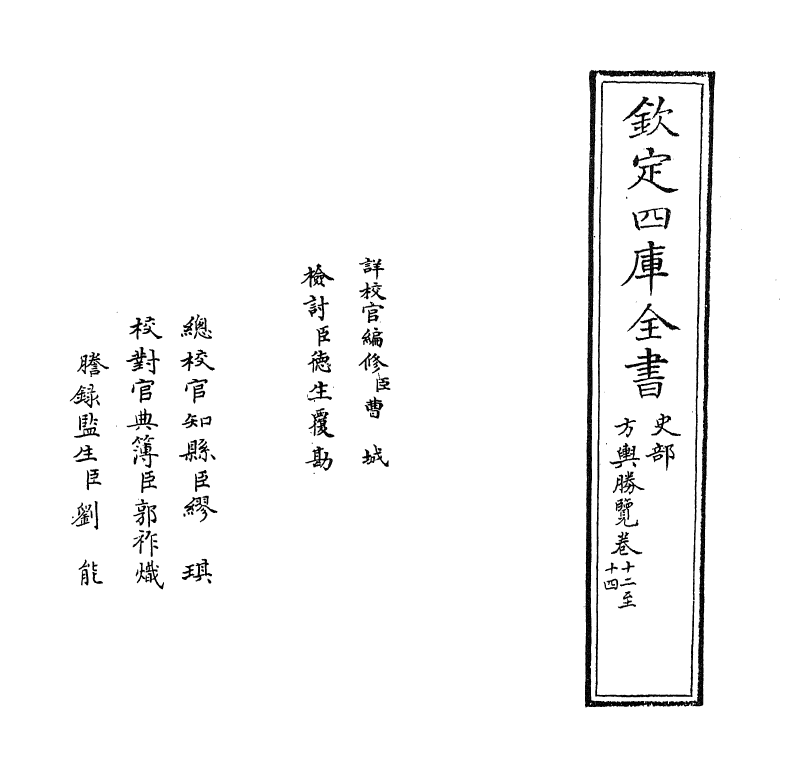 欽定四庫全書
史部
方輿勝覽卷十二至
十四
詳校官編修臣曹城
檢討臣德生覆勘
總校官知縣臣繆琪
校對官典簿臣郭祚熾
謄錄監生臣劉能